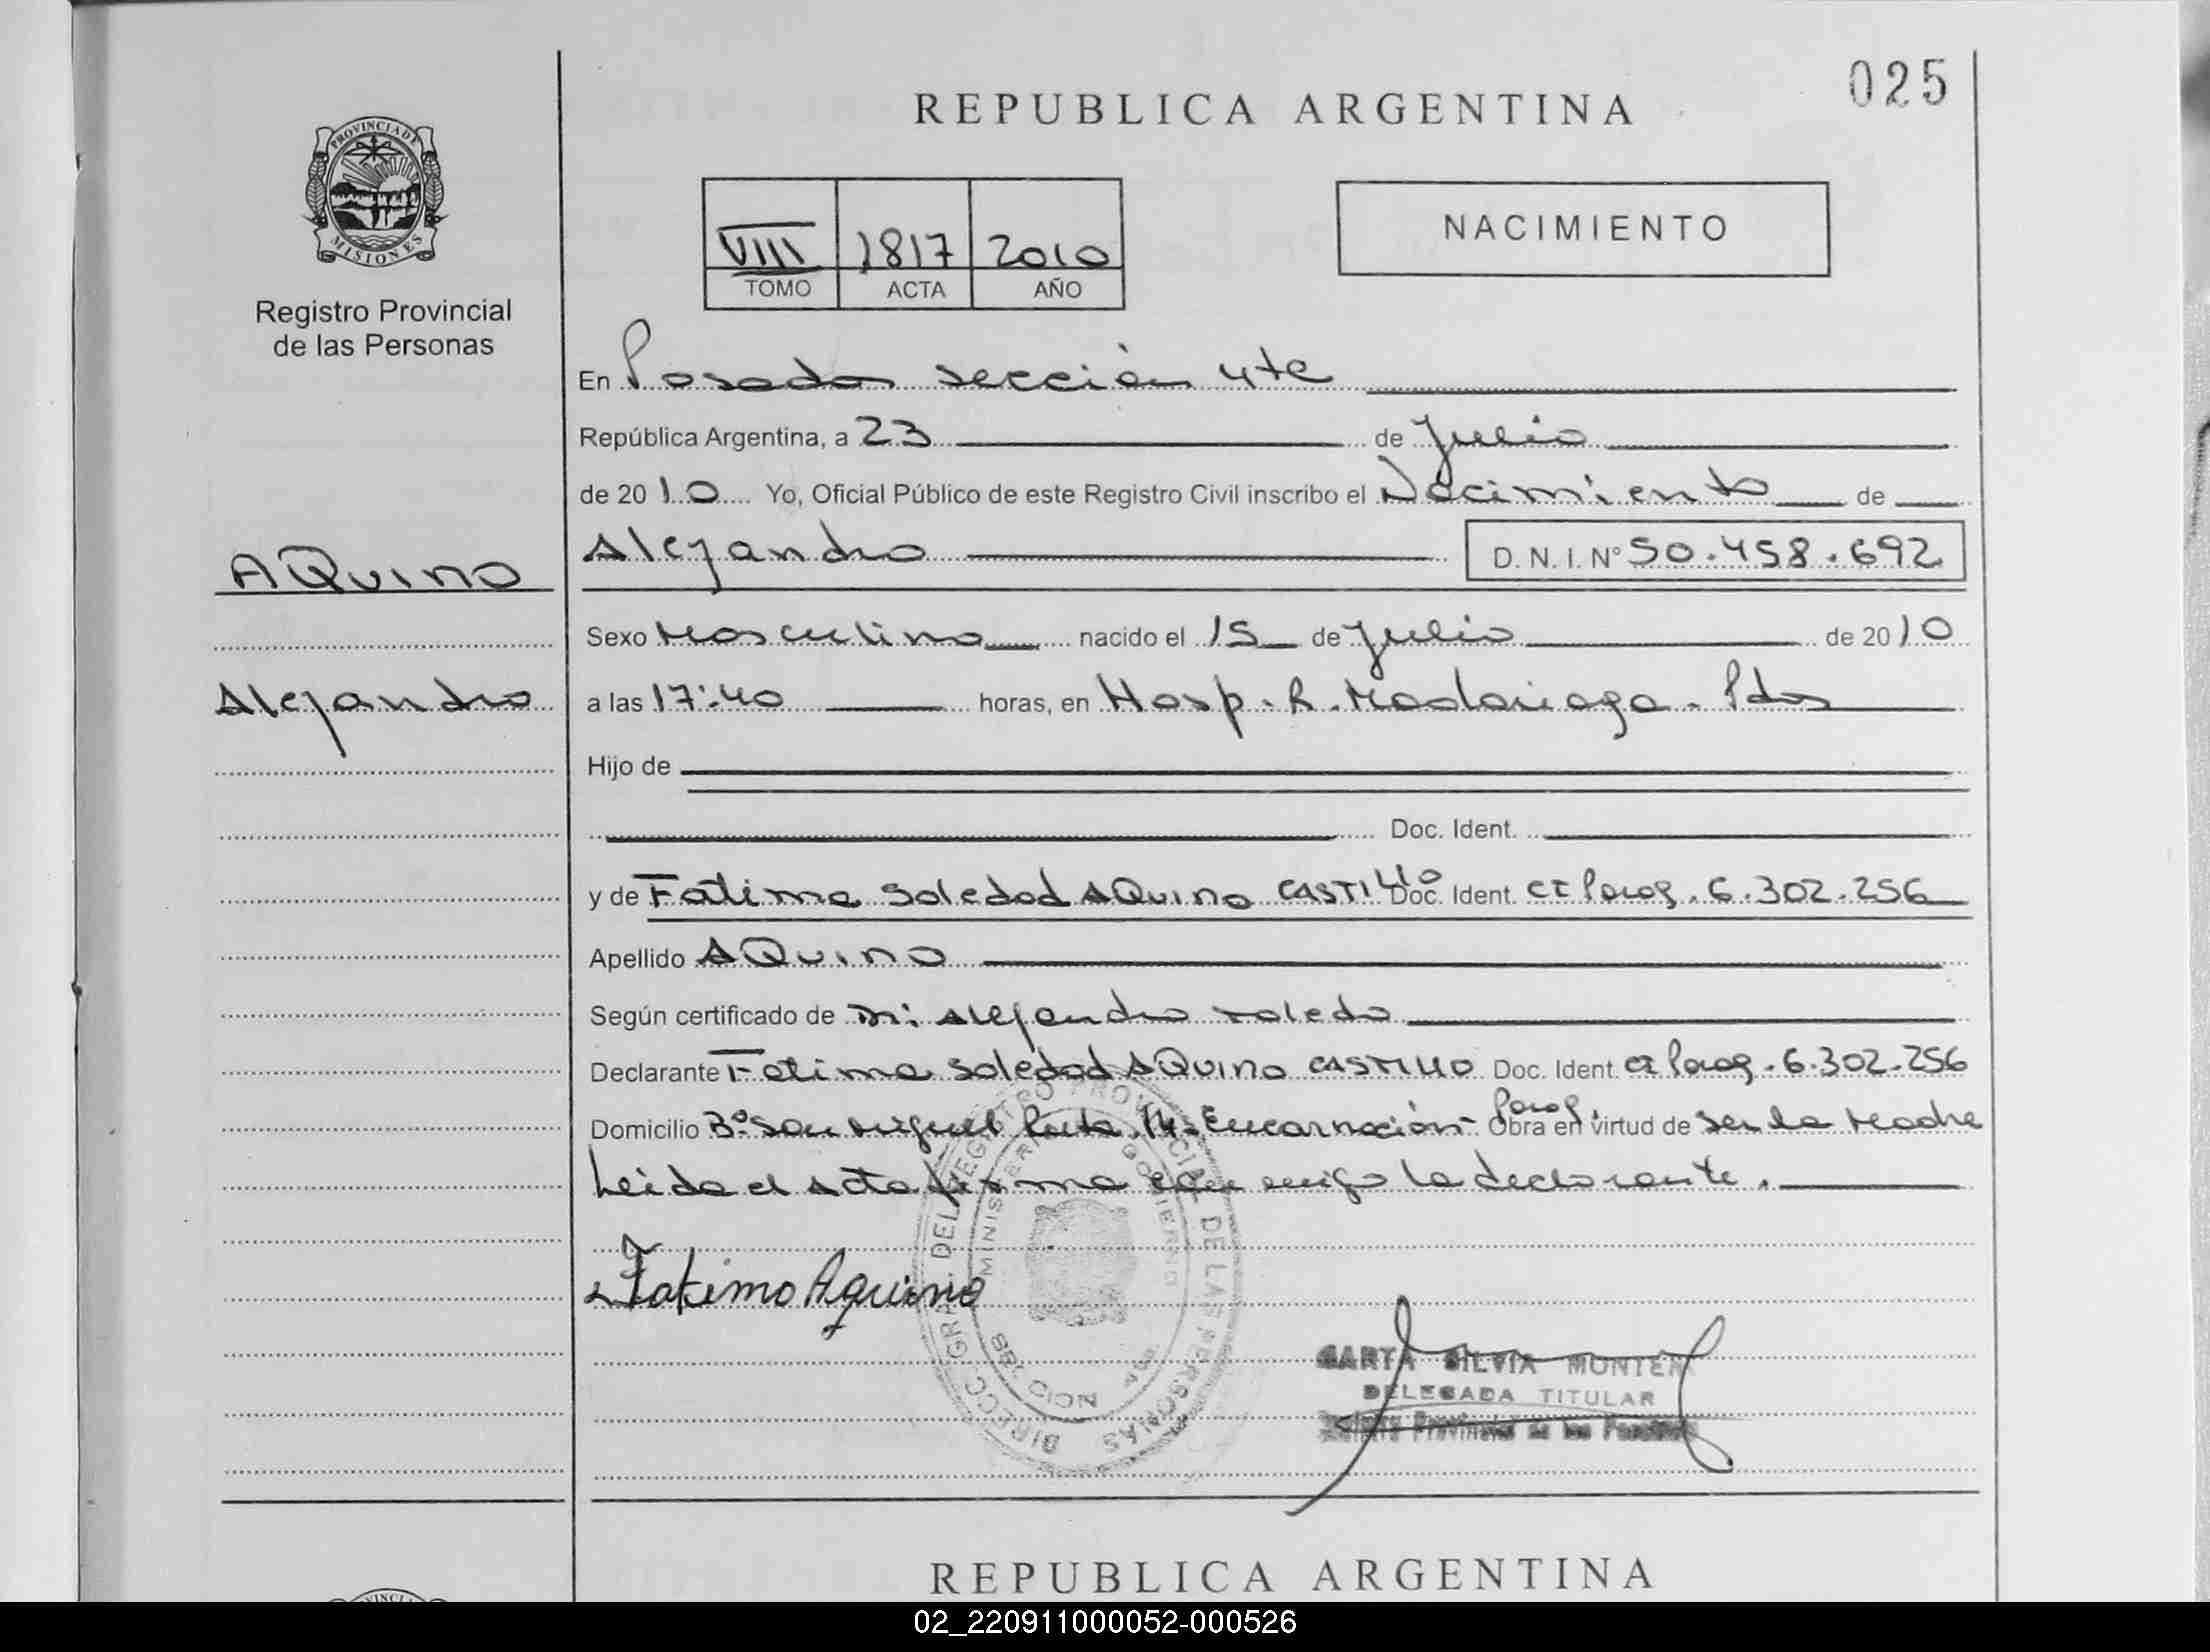 025
REPUBLICA ARGENTINA
PROVINCIA DE
MISIONES
Registro Provincial
de las Personas
VIII 1817 2010
TOMO ACTA AÑO
NACIMIENTO
En Posadas sección 4te
República Argentina, a 23 de Julio
de 20 10 Yo, Oficial Público de este Registro Civil inscribo el Nacimiento de
AQuino
Alejandro D. N. I. Nº 50.458.692
Sexo Masculino nacido el 15 de Julio de 20 10
Alejandro
a las 17:40 horas, en Hosp. R. Madariaga. Pdas
Hijo de
Doc. Ident.
y de Fatima Soledad AQuino CASTILLO Doc. Ident. CI Parag. 6.302.256
Apellido AQuino
Según certificado de Dr. Alejandro Toledo
Declarante Fatima Soledad AQuino CASTILLO Doc. Ident. CI Parag. 6.302.256
Domicilio Bº San Miguel Ruta 14 Encarnación - Parag. Obra en virtud de ser la Madre
Leida el Acta firma conmigo la declarante.
Fatima Aquino
DIRECC. GRAL. DEL REGISTRO PROVINCIAL DE LAS PERSONAS
MINISTERIO GOBIERNO
SILVIA MONTER
DELEGADA TITULAR
Provincial de las Personas
REPUBLICA ARGENTINA
02_220911000052-000526